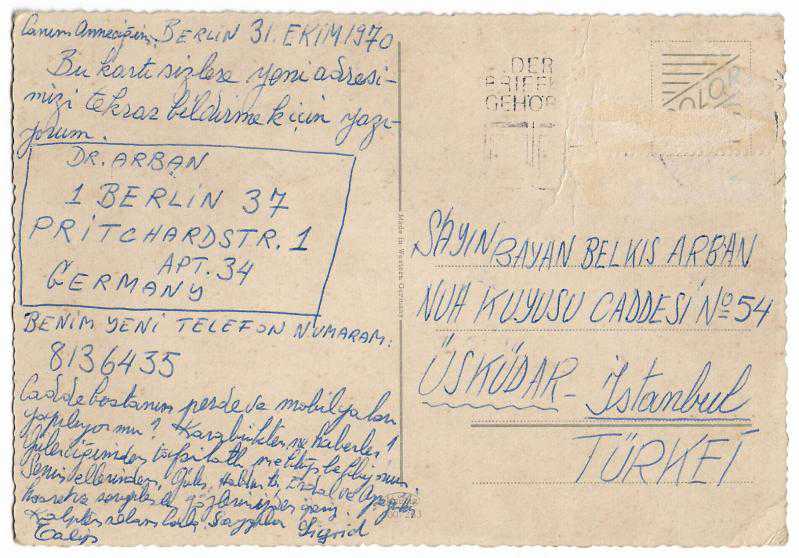 Canım Anneciğim, BERLİN 31. EKİM 1970
Bu kartı sizlere yeni adresi-
mizi tekrar bildirmek için yazı-
yorum.
DR. ARBAN
1 BERLİN 37
PRITCHARDSTR. 1
APT. 34
GERMANY
BENİM YENİ TELEFON NUMARAM:
8136435
Caddebostanın perde ve mobilyaları
yapılıyor mu? Karabükten ne haberler?
mektup bekliyorum.
Senin ellerinden, ve
hasretle sevgilerle gözlerinizden
Kalpten selamlarla, saygılar Sigrid
Talip
DER
BRIEF
GEHÖR
Made in Western Germany
SAYIN BAYAN BELKIS ARBAN
NUH KUYUSU CADDESİ No 54
ÜSKÜDAR - İstanbul
TÜRKEİ